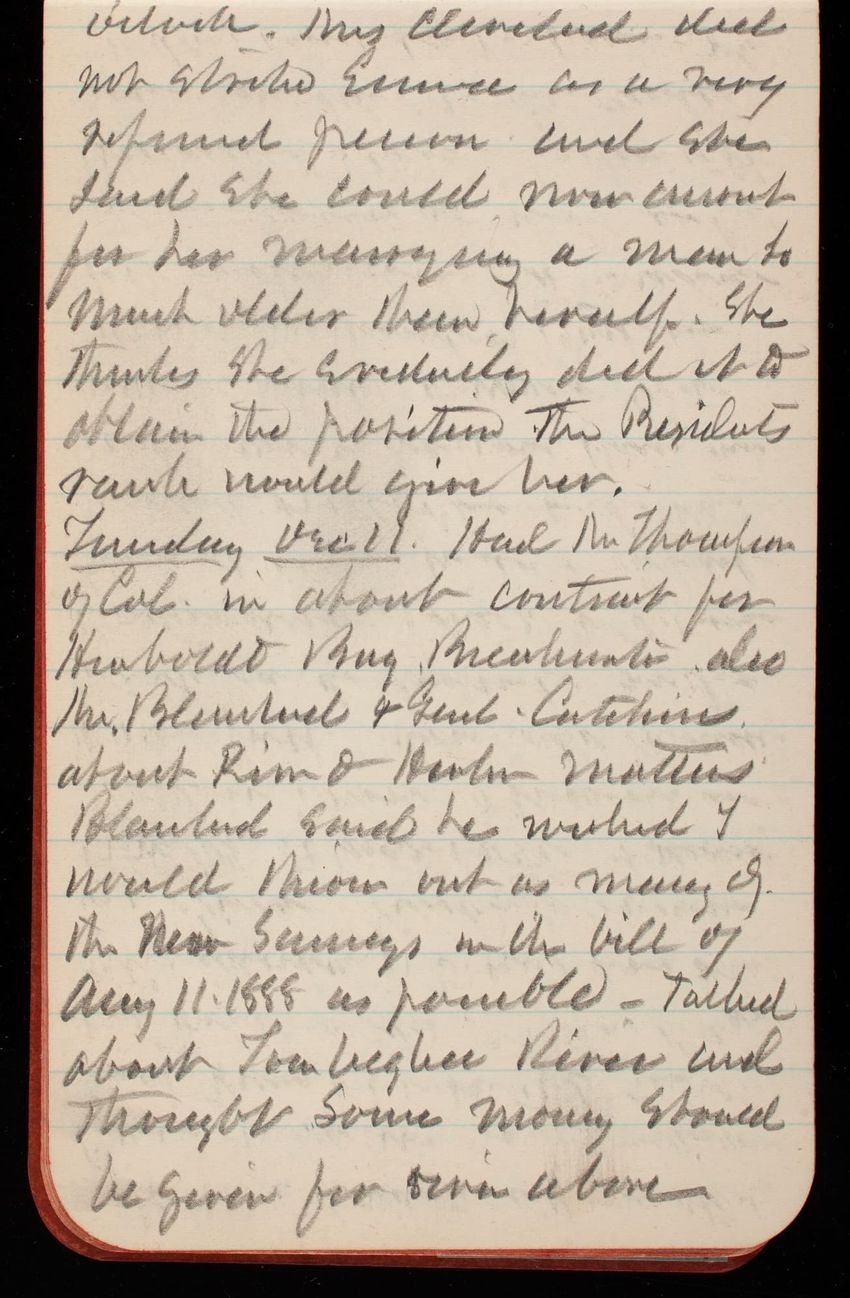 o'clock. Mrs Cleveland did
not strike Emma as a very
refined person and she
said she could now account
for her marrying a man so
much older than herself. She
thinks she evidently did it to
obtain the position the Presidents
rank would give her.
Tuesday Dec 11. Had Mr Thompson
of Cal. in about contract for
Humboldt Bay Breakwater also
Mr. Blanchard & Genl. Catchins.
about River & Harbor matters
Blanchard said he wished I
would throw out as many of
the New Surveys in the bill of
Aug 11. 1888 as possible - Talked
about Tombigbee River and
thought some money should
be given for river above